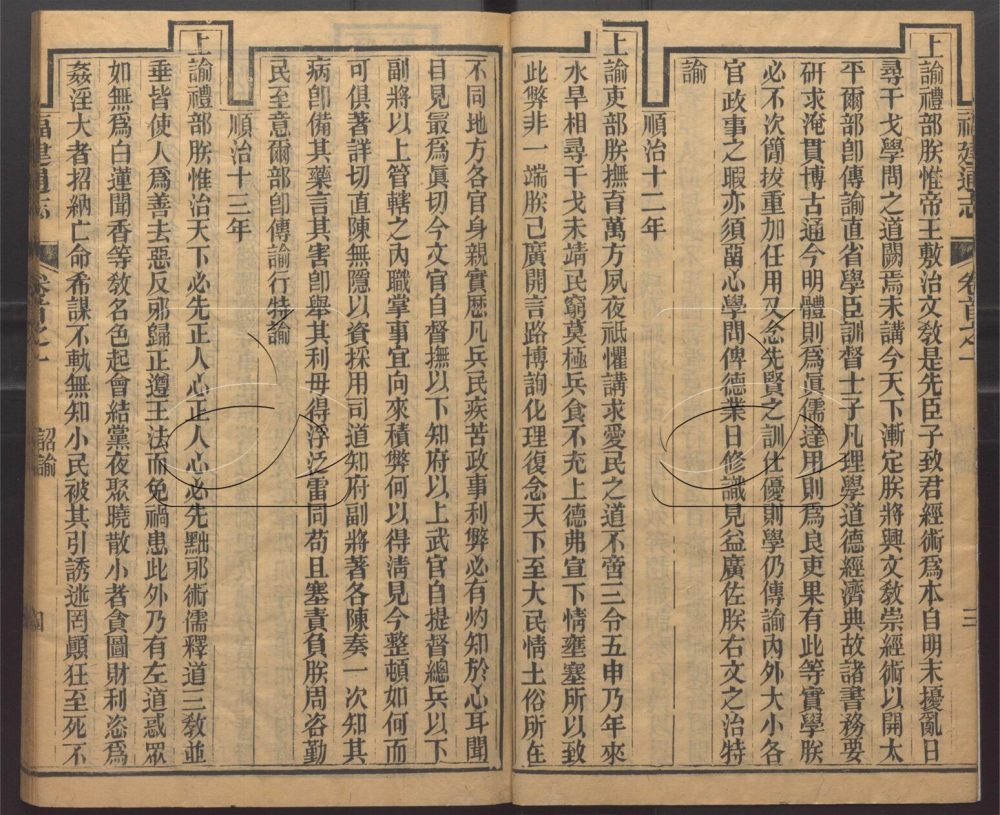 福建通志
卷首之一
三
上諭禮部朕惟帝王敷治文教是先臣子致君經術為本自明末擾亂日
尋干戈學問之道闕焉未講今天下漸定朕將興文教崇經術以開太
平爾部卽傳諭直省學臣訓督士子凡理學道德經濟典故諸書務要
研求淹貫博古通今明體則為眞儒達用則為良吏果有此等實學朕
必不次簡拔重加任用又念先賢之訓仕優則學仍傳諭內外大小各
官政事之暇亦須畱心學問俾德業日修識見益廣佐朕右文之治特
諭
順治十二年
上諭吏部朕撫育萬方夙夜祇懼講求愛民之道不啻三令五申乃年來
水旱相尋干戈未靖民窮莫極兵食不充上德弗宣下情壅塞所以致
此弊非一端朕已廣開言路博詢化理復念天下至大民情土俗所在
不同地方各官身親實歷凡兵民疾苦政事利弊必有灼知於心耳聞
目見最為眞切今文官自督撫以下知府以上武官自提督總兵以下
副將以上管轄之內職掌事宜向來積弊何以得清見今整頓如何而
可俱著詳切直陳無隱以資採用司道知府副將著各陳奏一次知其
病卽備其藥言其害卽舉其利毋得浮泛雷同苟且塞責負朕周咨勤
民至意爾部卽傳諭行特諭
順治十三年
上諭禮部朕惟治天下必先正人心正人心必先黜邪術儒釋道三教並
垂皆使人為善去惡反邪歸正遵王法而免禍患此外乃有左道惑眾
如無為白蓮聞香等教名色起會結黨夜聚曉散小者貪圖財利恣為
姦淫大者招納亡命希謀不軌無知小民被其引誘迷罔顚狂至死不
福建通志
卷首之一
詔諭
四